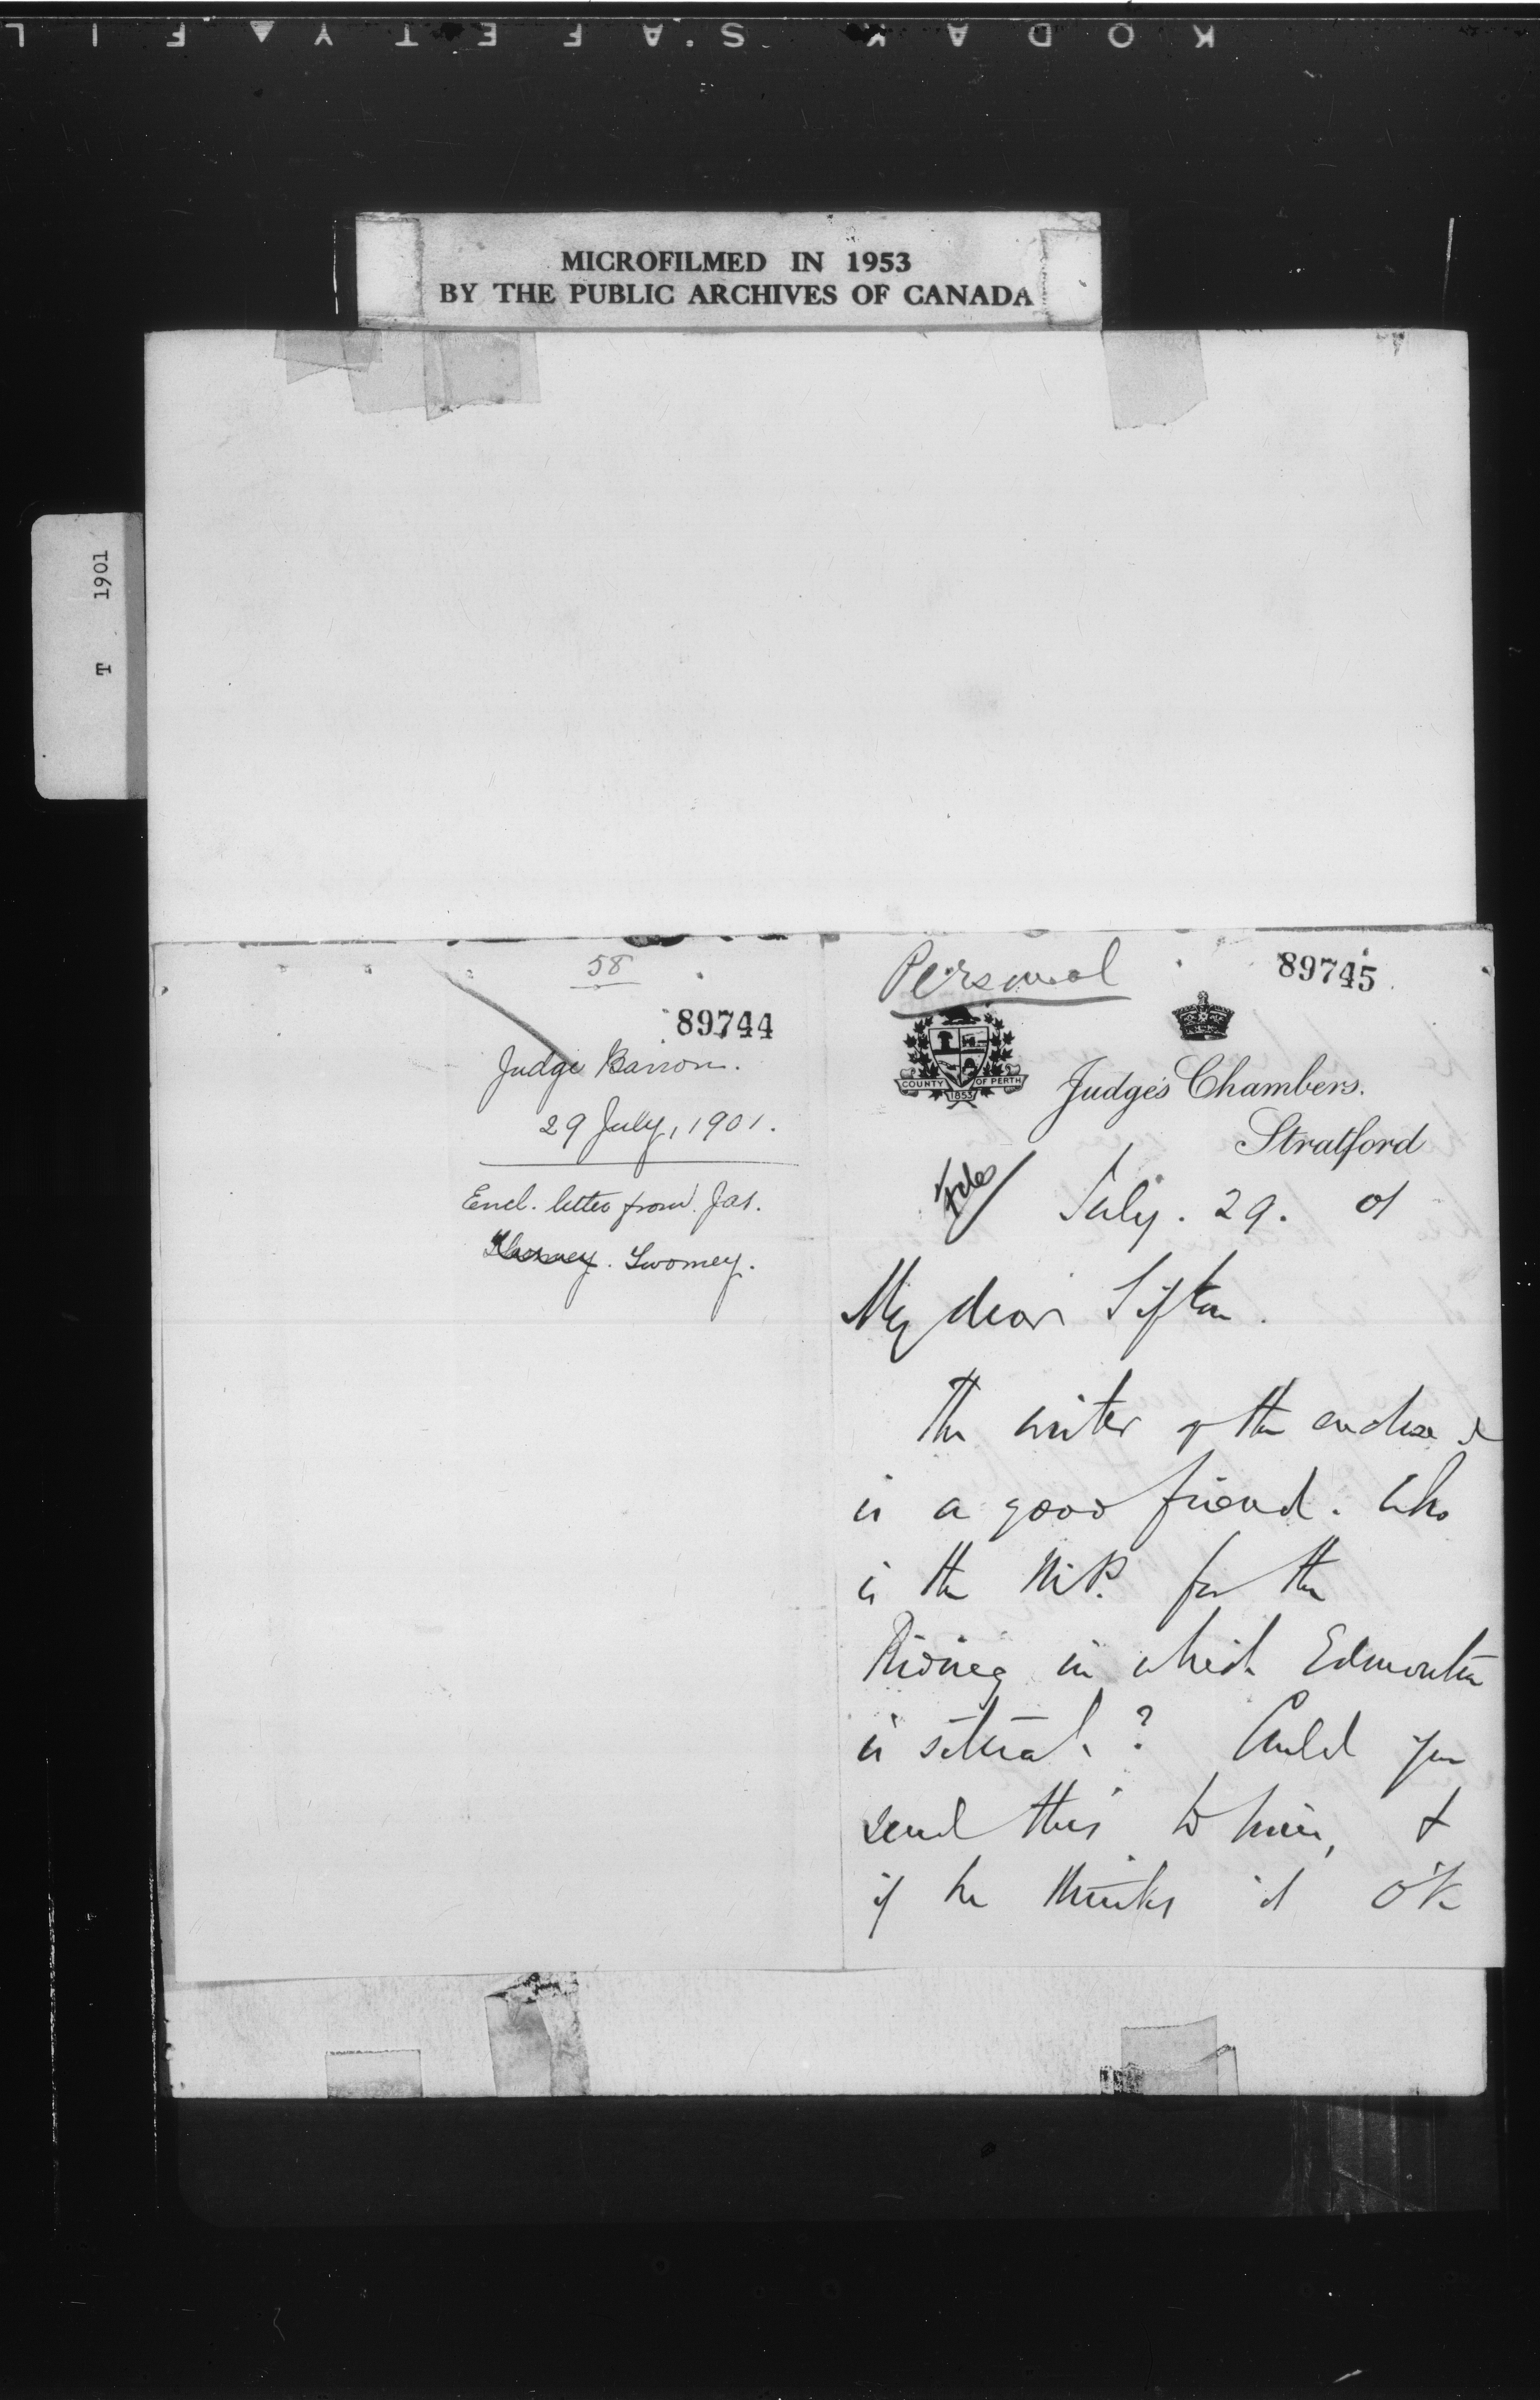 KODAK SAFETY FIL
MICROFILMED IN 1953
BY THE PUBLIC ARCHIVES OF CANADA
T 1901
58
89744
Judge Barron.
29 July, 1901.
Encl. letter from Jas.
Twomey.
Personal
89745
COUNTY OF PERTH
1853
Judge's Chambers.
Stratford
July. 29. 01
My dear Sifton.
The writer of the enclosed
is a good friend. Who
is the M.P. for the
Riding in which Edmonton
is situate? Could you
send this to him, &
if he thinks it OK